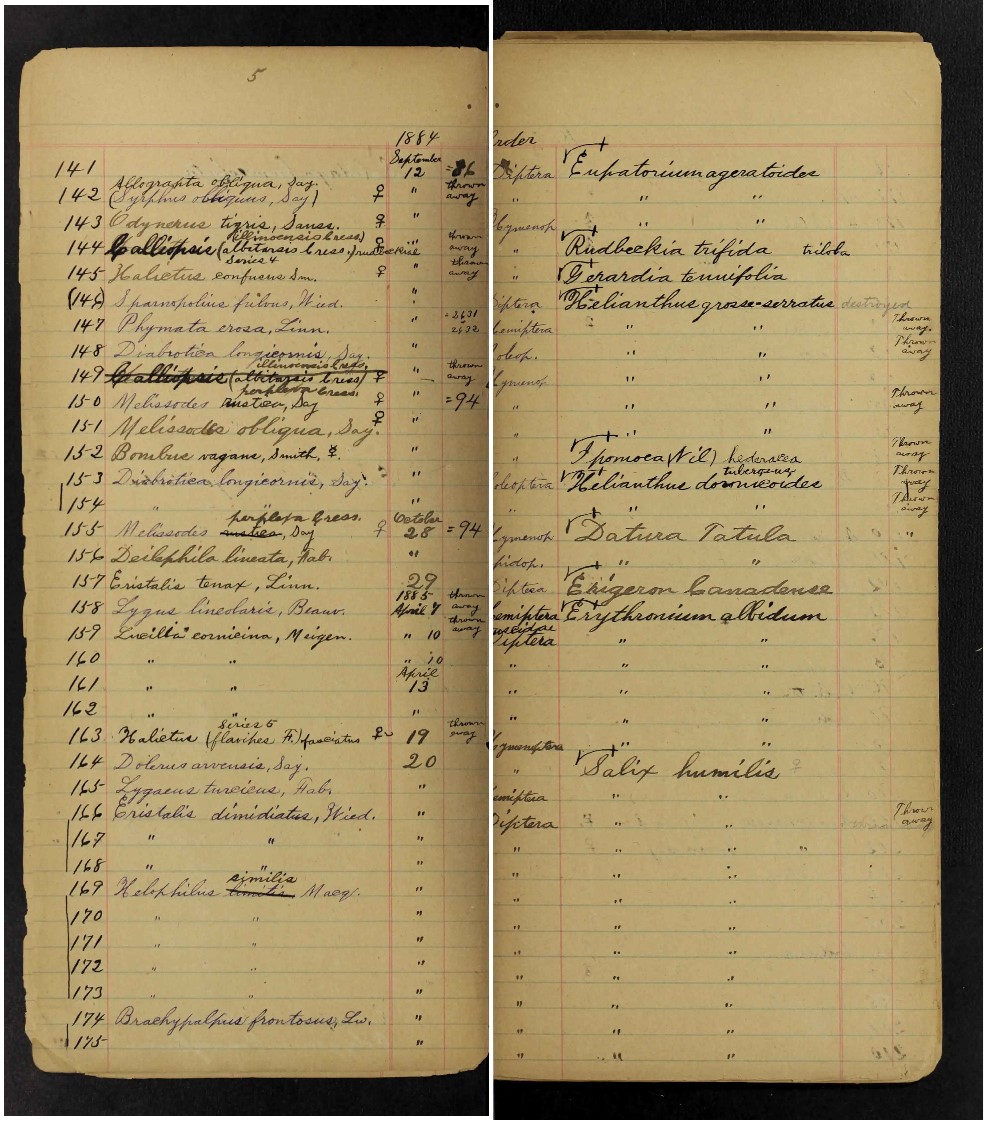 5
1884
September
141 12 =86
Allograpta obliqua, Say. thrown
142 (Syrphus obliquus, Say) ♀ " away
143 Odynerus tigris, Sauss. ♀ "
illinoensis Cress) thrown
144 Calliopsis (albitarsis Cress.) rudbeckiae ♀ " away
Series 4
145 Halictus confusus Sm. ♀ " thrown away
(146) Sparnopolius fulvus, Wied. "
147 Phymata erosa, Linn. " =2631
2632
148 Diabrotica longicornis, Say. "
illinoensis Cress. thrown
149 Calliopsis (albitarsis Cress) ♀ " away
perplexa Cress.
150 Melissodes rustica, Say ♀ " =94
151 Melissodes obliqua, Say. ♀ "
152 Bombus vagans, Smith, ☿. "
153 Diabrotica longicornis, Say. "
154 " "
perplexa Cress. October
155 Melissodes rustica, Say ♀ 28 =94
156 Deilephila lineata, Fab. "
157 Eristalis tenax, Linn. 29
1885 thrown
158 Lygus lineolaris, Beauv. April 7 away
thrown
159 Lucilia cornicina, Meigen. " 10 away
160 " " " 10
April
161 " " 13
162 " " "
Series 5 thrown
163 Halictus (flavipes F.) fasciatus ♀ 19 away
164 Dolerus arvensis, Say. 20
165 Lygaeus turcicus, Fab. "
166 Eristalis dimidiatus, Wied. "
167 " " "
168 " " "
similis
169 Helophilus limitis, Macq. "
170 " " "
171 " " "
172 " " "
173 " " "
174 Brachypalpus frontosus, Lw. "
175 "
rder
Diptera Eupatorium ageratoides
" " "
Hymenop " "
" Rudbeckia trifida triloba
" Gerardia tenuifolia
Diptera Helianthus grosse-serratus destroyed
Hemiptera " " Thrown away.
oleop. " " Thrown away
Hymenop " "
" " " Thrown away
" " "
" Ipomoea (Nil) hederacea Thrown away
tuberosus
oleoptera Helianthus doronicoides Thrown away
" " " Thrown away
ymenop Datura Tatula "
pidop. " "
Diptera Erigeron Canadense
emiptera Erythronium albidum
uscidae
iptera " "
" " "
" " "
" " "
ymenoptera " "
" Salix humilis
emiptera " "
Diptera " " Thrown away
" " " "
" " "
" " "
" " "
" " "
" " "
" " "
" " "
" " "